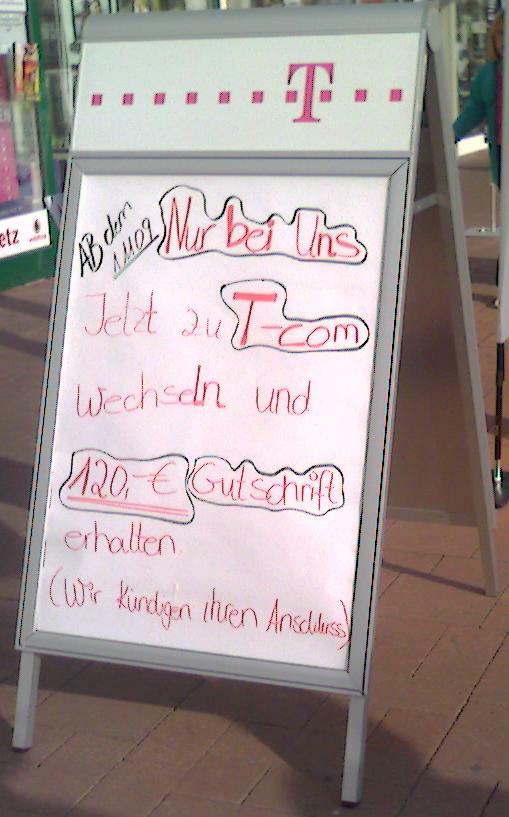 T
AB dem
1.11.09
Nur bei Uns
Jetzt zu T-com
Wechseln und
120,-€ Gutschrift
erhalten
(Wir kündigen ihren Anschluss)
etz